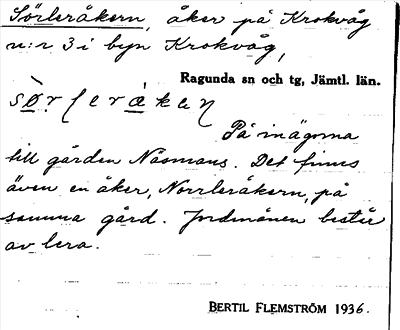 Sörleråkern, åker på Krokvåg
n:r 3 i byn Krokvåg,
Ragunda sn och tg, Jämtl. län.
På inägorna
till gården Näsmans. Det finns
även en åker, Norrleråkern, på
samma gård. Jordmånen består
av lera.
BERTIL FLEMSTRÖM 1936.